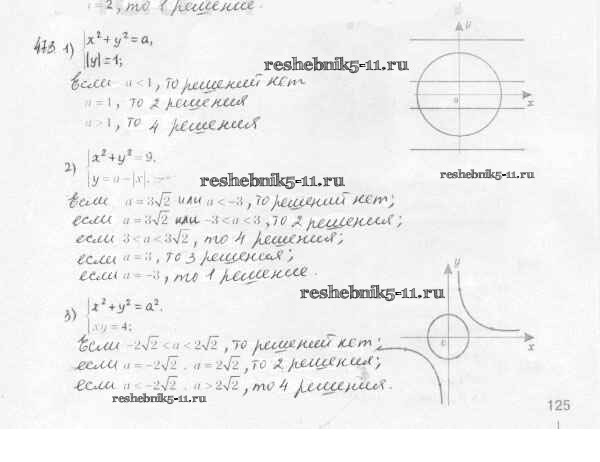 a = 2, то 1 решение.
473 1) x² + y² = a,
|y| = 1;
reshebnik5-11.ru
Если a < 1, то решений нет
a = 1, то 2 решения
a > 1, то 4 решения
y
0
x
2) x² + y² = 9,
y = a − |x|.
reshebnik5-11.ru
reshebnik5-11.ru
Если a = 3√2 или a < −3, то решений нет;
если a = 3√2 или −3 < a < 3, то 2 решения;
если 3 < a < 3√2, то 4 решения;
если a = 3, то 3 решения;
если a = −3, то 1 решение.
reshebnik5-11.ru
3) x² + y² = a²,
xy = 4;
Если −2√2 < a < 2√2, то решений нет;
если a = −2√2 . a = 2√2, то 2 решения;
если a < −2√2 . a > 2√2, то 4 решения.
reshebnik5-11.ru
y
0
x
125